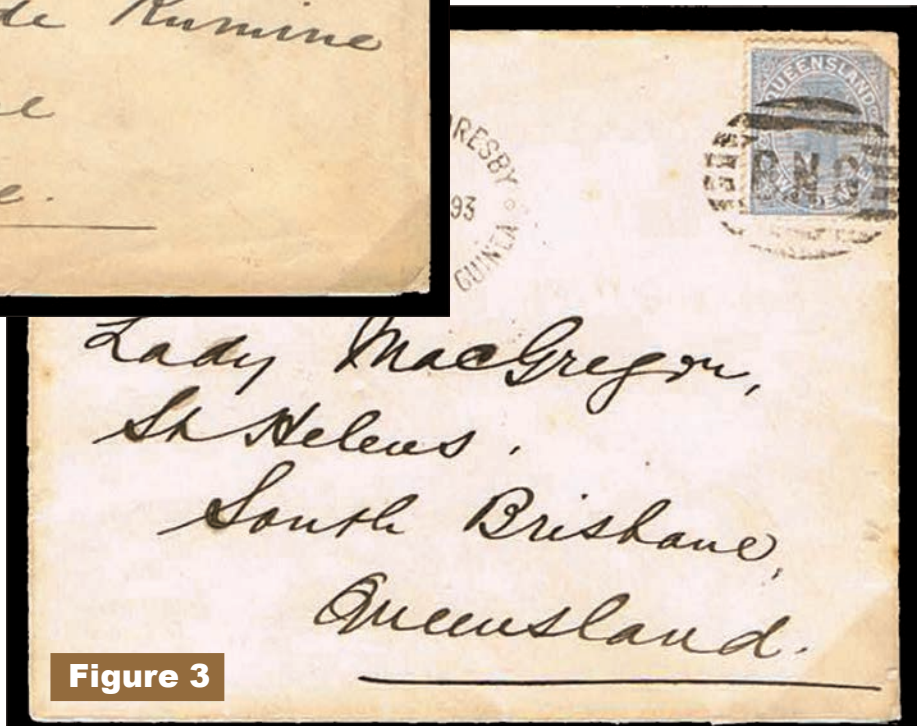 de Rumine
e.
RESBY
93
GUINEA
QUEENSLAND
B N G
Lady MacGregor,
St Helens.
South Brisbane,
Queensland.
Figure 3